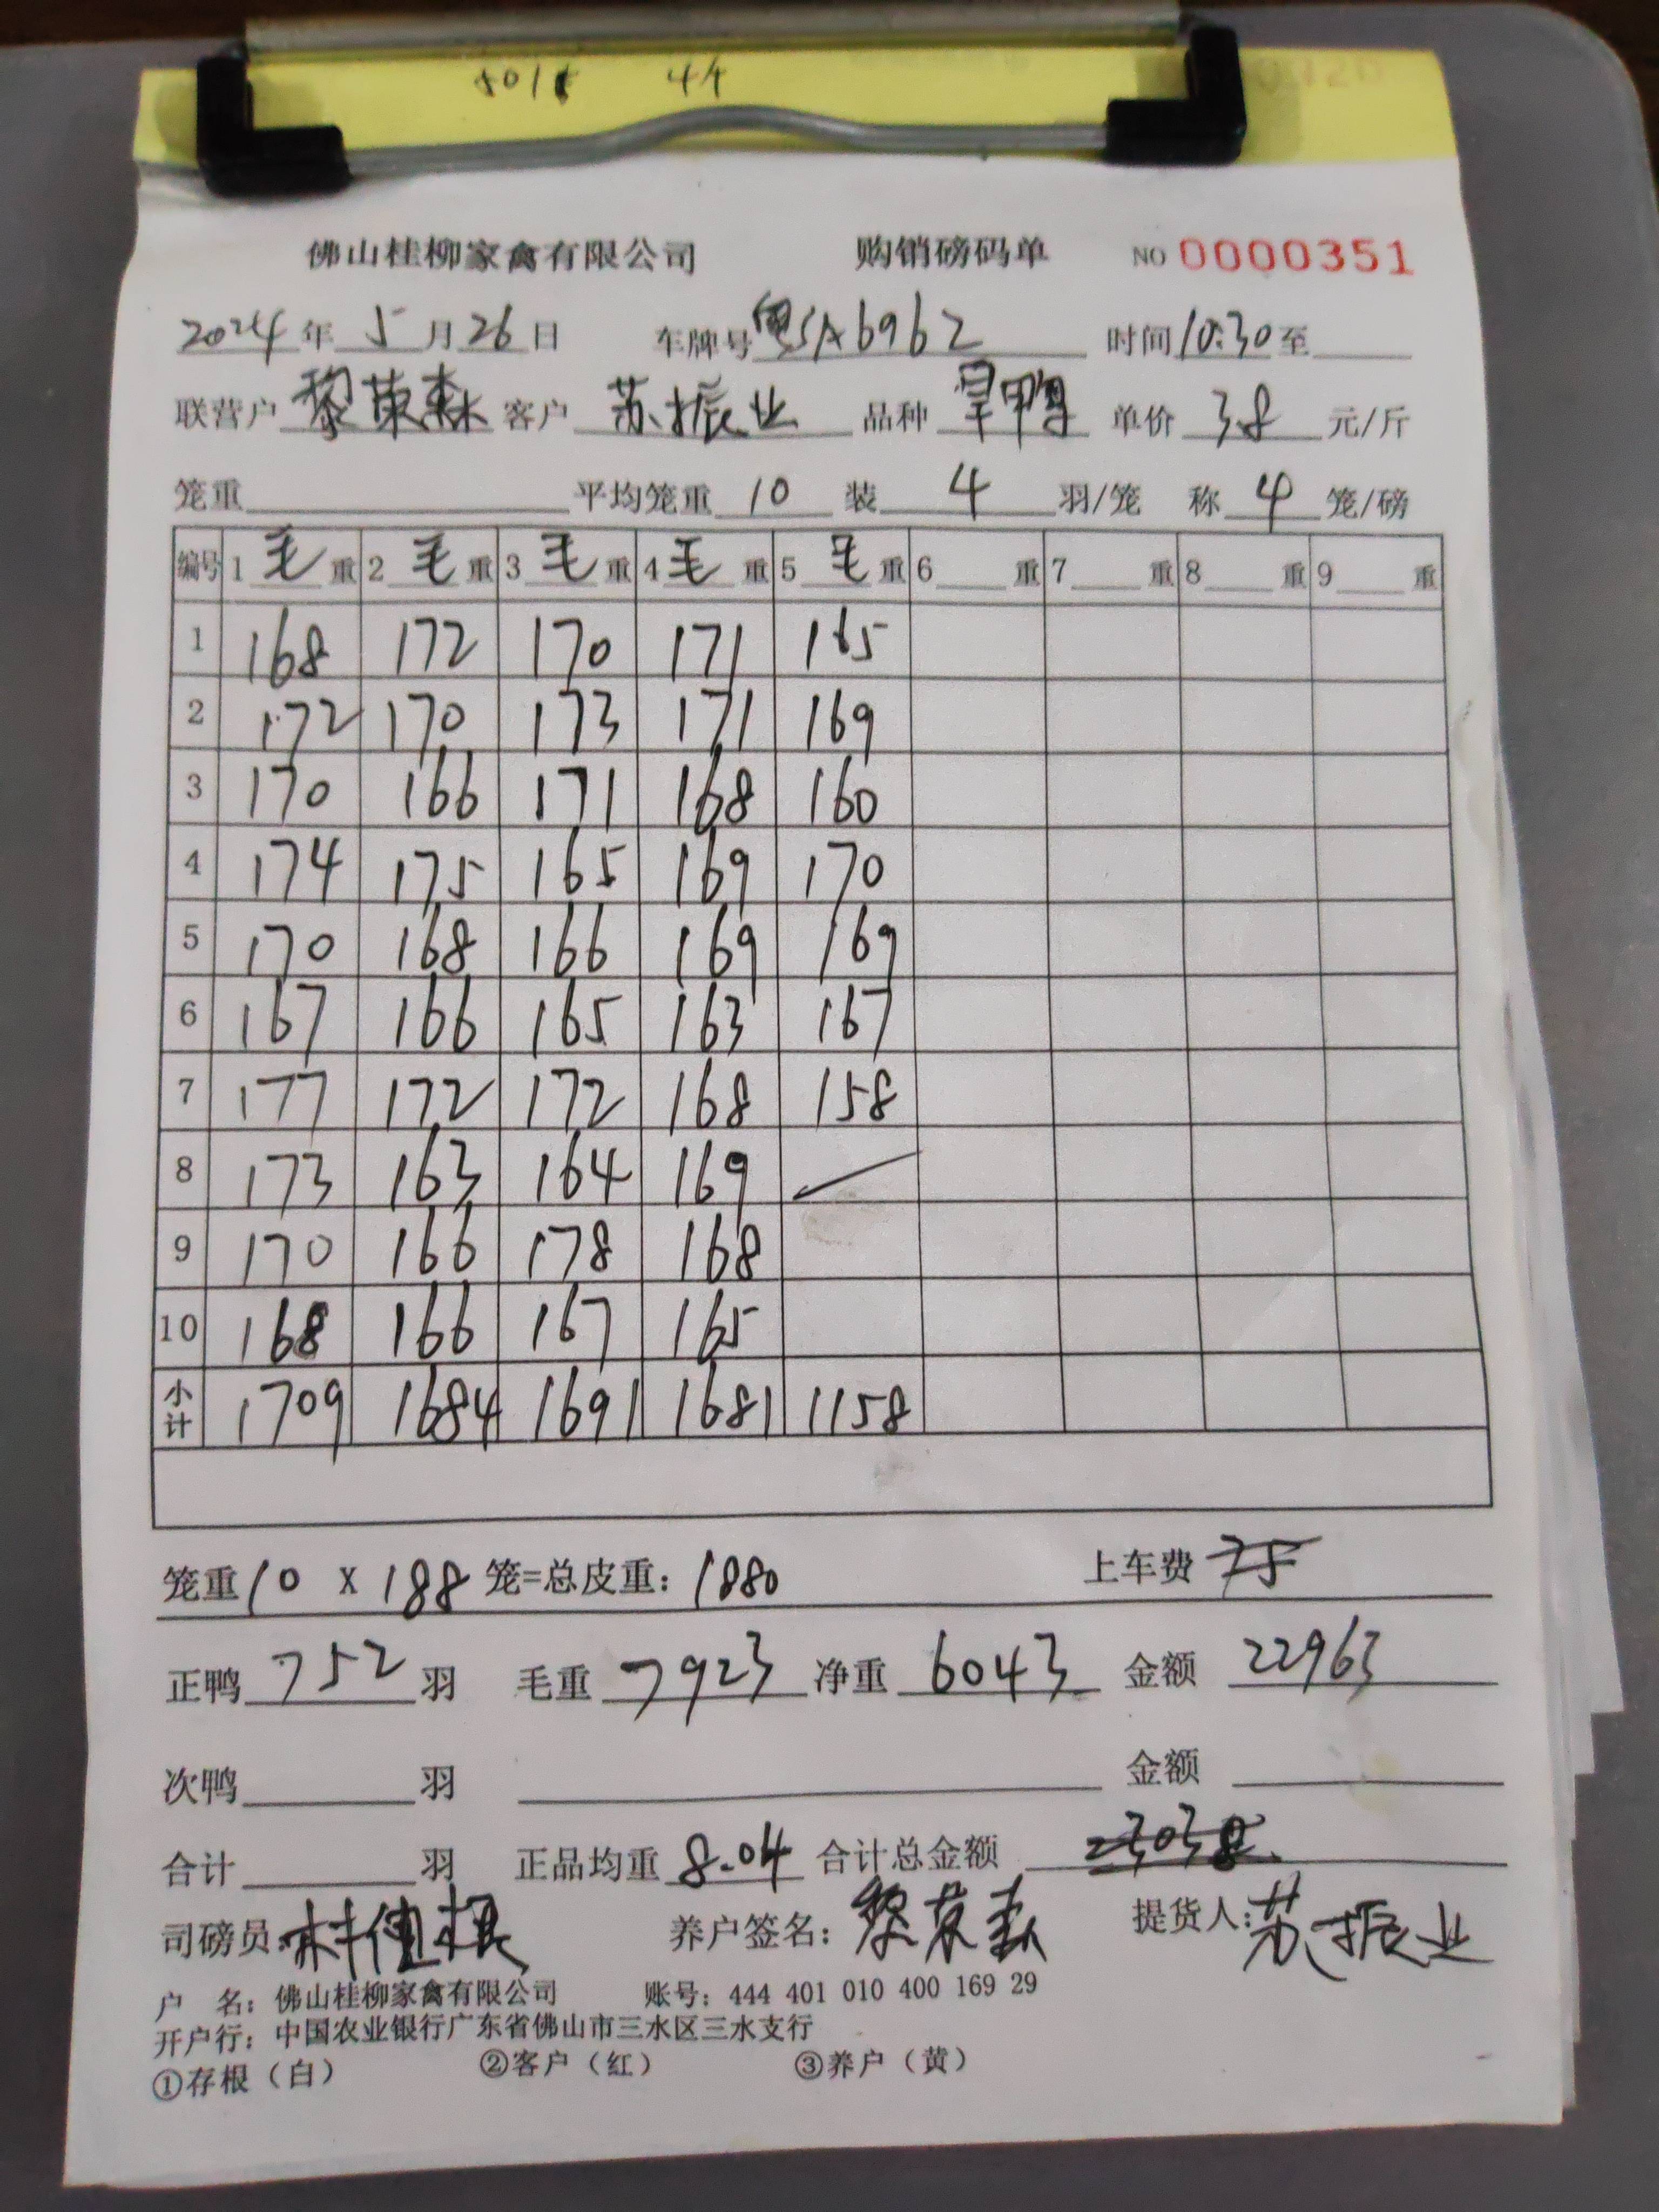 5018 44
佛山桂柳家禽有限公司 购销磅码单 NO 0000351
2024年 5月26日 车牌号 粤SA6962 时间10:30至
联营户 黎荣森 客户 苏振业 品种 旱鸭 单价 3.8 元/斤
笼重 平均笼重 10 装 4 羽/笼 称 4 笼/磅
编号 1 毛 重 2 毛 重 3 毛 重 4 毛 重 5 毛 重 6 重 7 重 8 重 9 重
1 168 172 170 171 165
2 172 170 173 171 169
3 170 166 171 168 160
4 174 175 165 169 170
5 170 168 166 169 169
6 167 166 165 163 167
7 177 172 172 168 158
8 173 163 164 169
9 170 166 178 168
10 168 166 167 165
小计 1709 1684 1691 1681 1158
笼重 10 X 188 笼=总皮重: 1880 上车费 75
正鸭 752 羽 毛重 7923 净重 6043 金额 22963
次鸭 羽 金额
合计 羽 正品均重 8.04 合计总金额 23038
司磅员: 林佳根 养户签名: 黎荣森 提货人: 苏振业
户 名: 佛山桂柳家禽有限公司 账号: 444 401 010 400 169 29
开户行: 中国农业银行广东省佛山市三水区三水支行
①存根（白） ②客户（红） ③养户（黄）